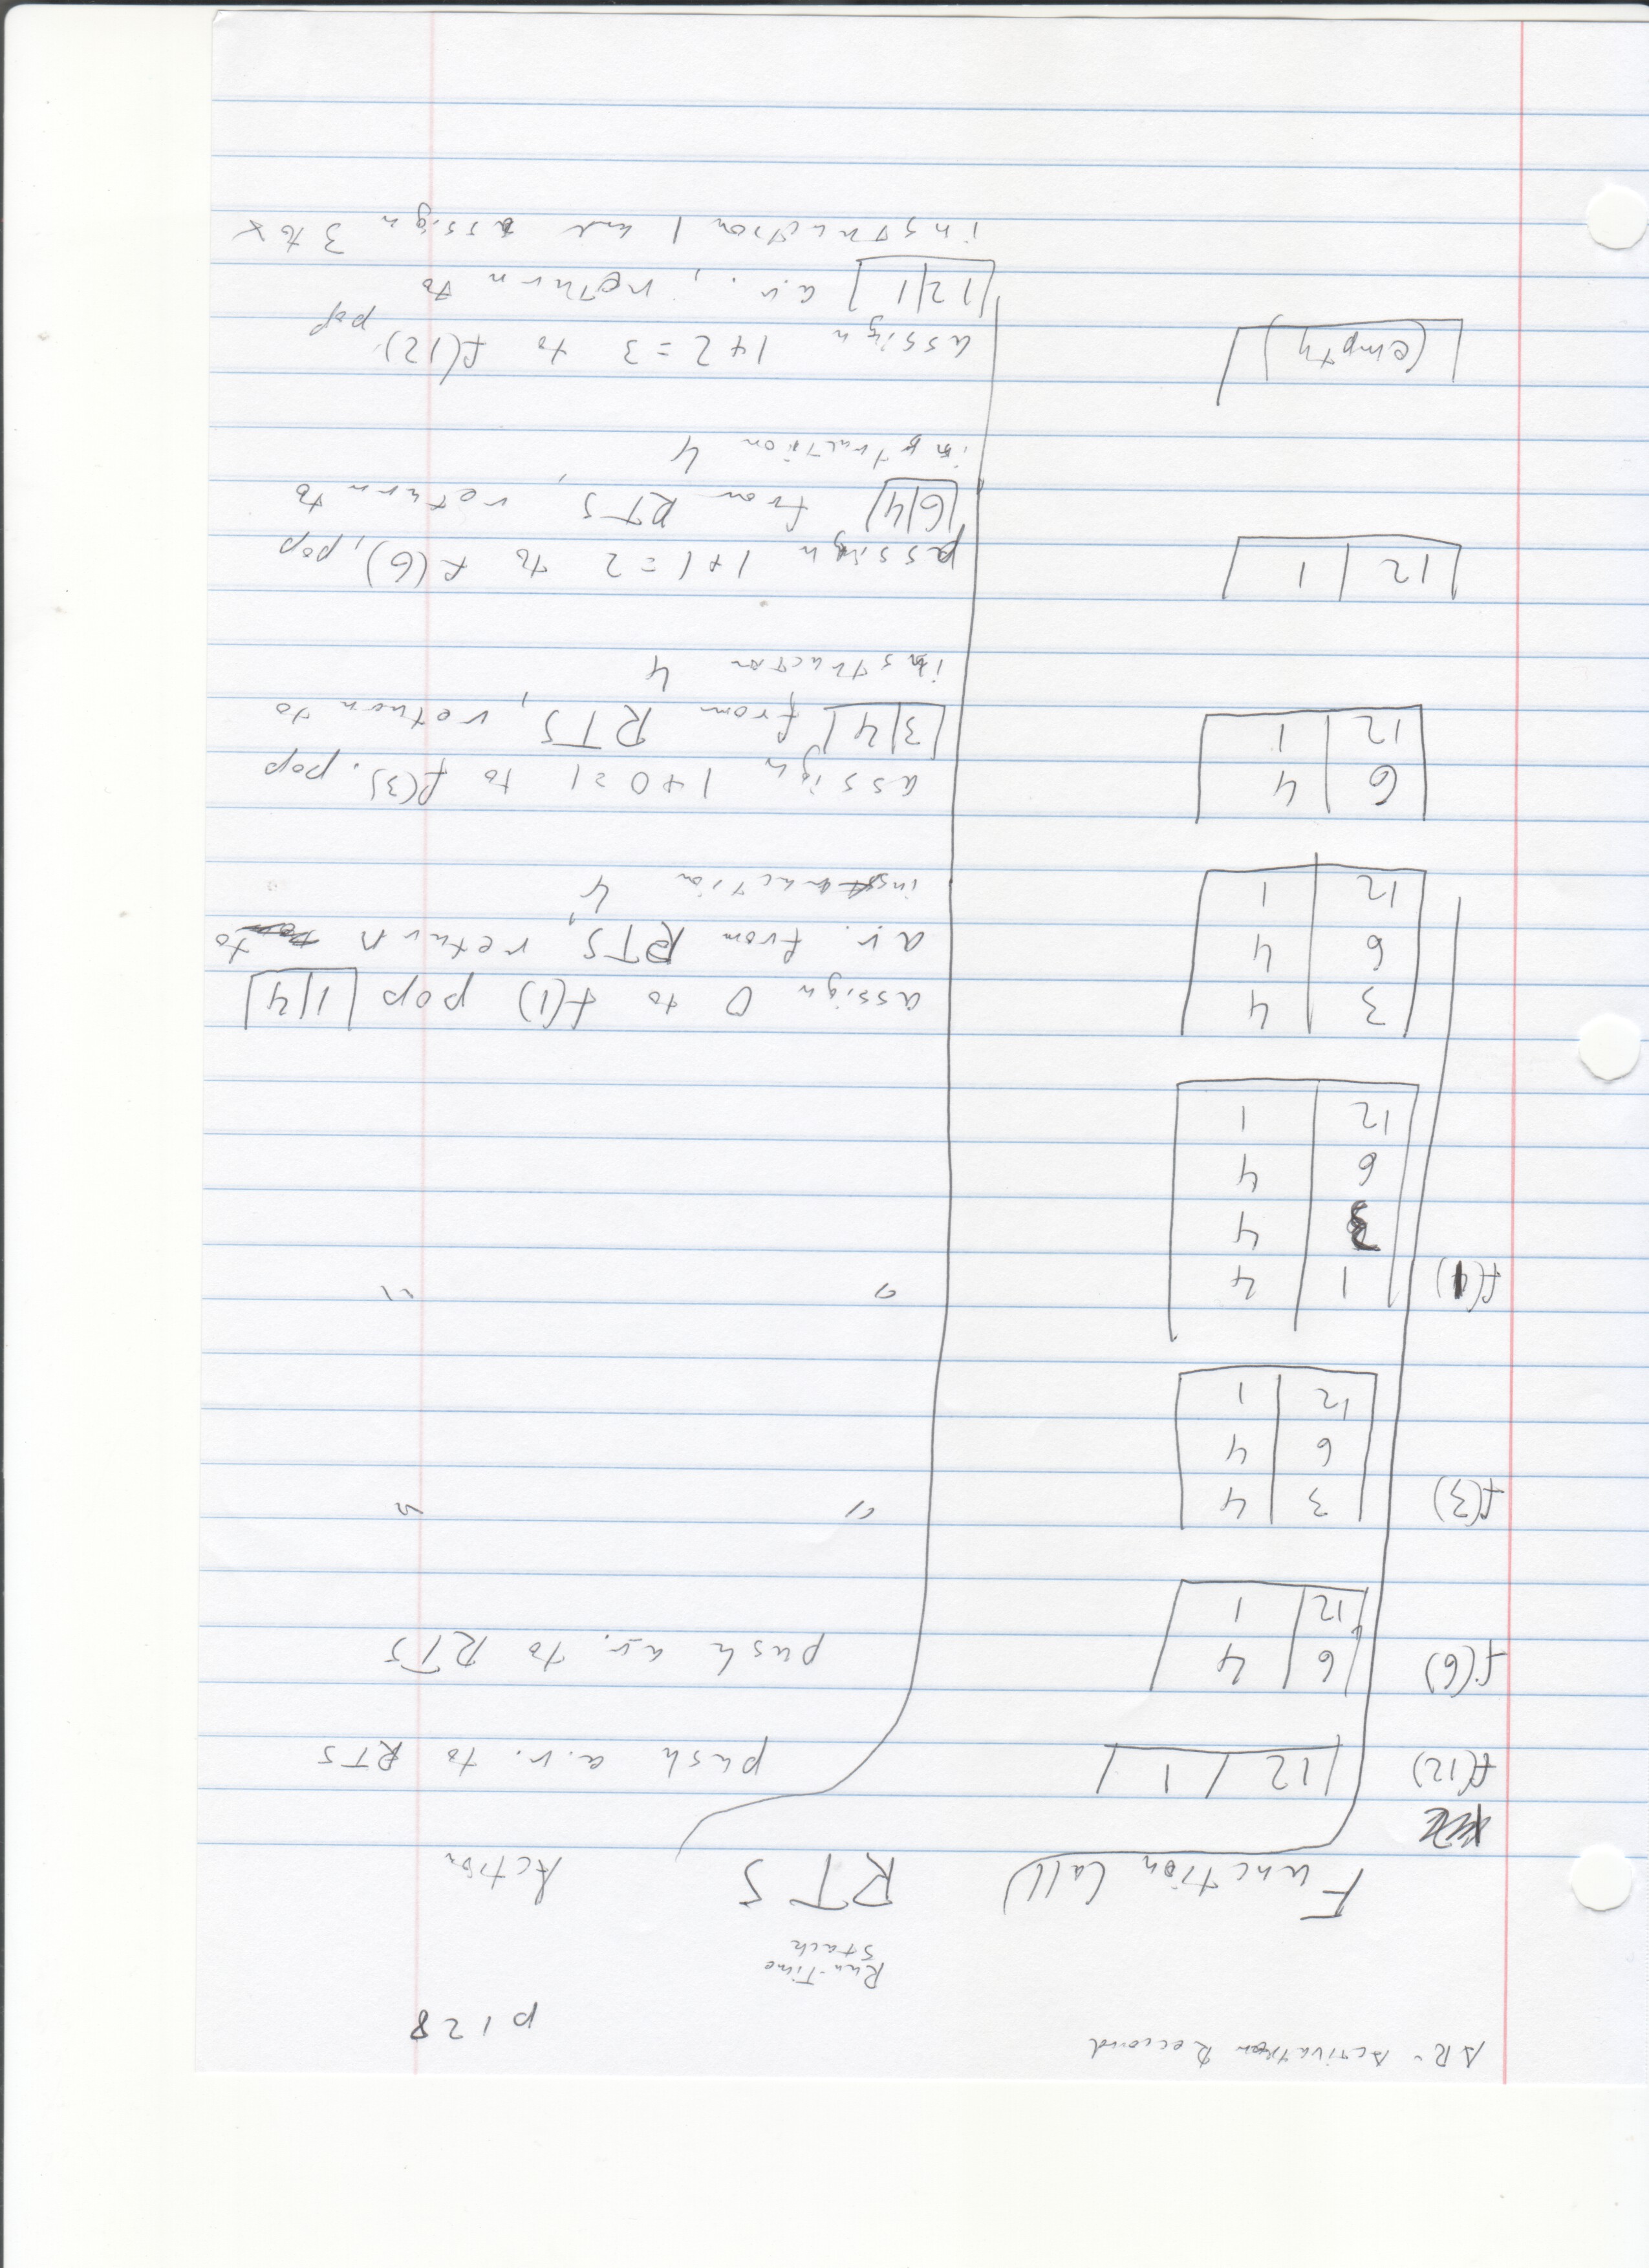 AR - Activation Record
p128
Run-Time
Stack
Function Call RTS Action
f(12) 12 1 push a.r. to RTS
f(6) 6 4 push a.r. to RTS
12 1
f(3) 3 4 " "
6 4
12 1
f(1) 1 4 " "
3 4
6 4
12 1
3 4 assign 0 to f(1) pop 1 4
6 4 a.r. from RTS, return to
12 1 instruction 4
6 4 assign 1+0=1 to f(3). pop
12 1 3 4 from RTS, return to
instruction 4
12 1 assign 1+1=2 to f(6), pop
6 4 from RTS, return to
instruction 4
(empty) assign 1+2=3 to f(12), pop
12 1 a.r., return to
instruction 1 and assign 3 to x